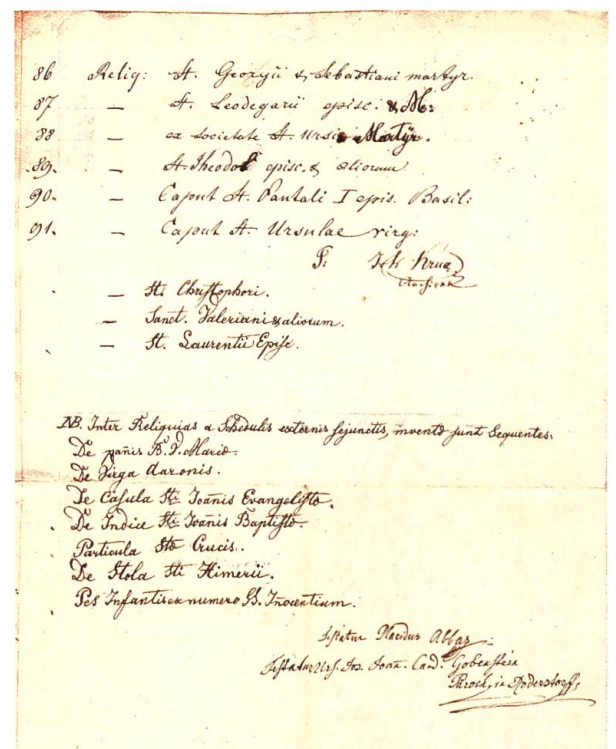 86 Reliq: St. Georgii & Sebastiani martyr.
87 — St. Leodegarii episc: & M:
88 — ex societate St. Ursi Martÿr.
89. — St. Theodol episc. & aliorum
90. — Caput St. Pantali I epis. Basil:
91. — Caput St. Ursulae virg:
T:
— St. Christophori.
— Sanct. Valeriani & aliorum.
— St. Laurentii Episc.
NB. Inter Reliquias a Schedulis externis sejunctis, inventæ sunt Sequentes.
De pañis B. V. Mariæ.
De Virga Aaronis.
De Casula Sti Joañis Evangelistæ.
De Indice Sti Joañis Baptistæ.
Particula Stæ Crucis.
De Stola Sti Himerii.
Pes Infantis ex numero SS. Iñocentium.
Testatur Placidus Abbas:
Testatur Urs. Jos. Joan. Cand. Gobenstein
Paroch. in Roderstorf